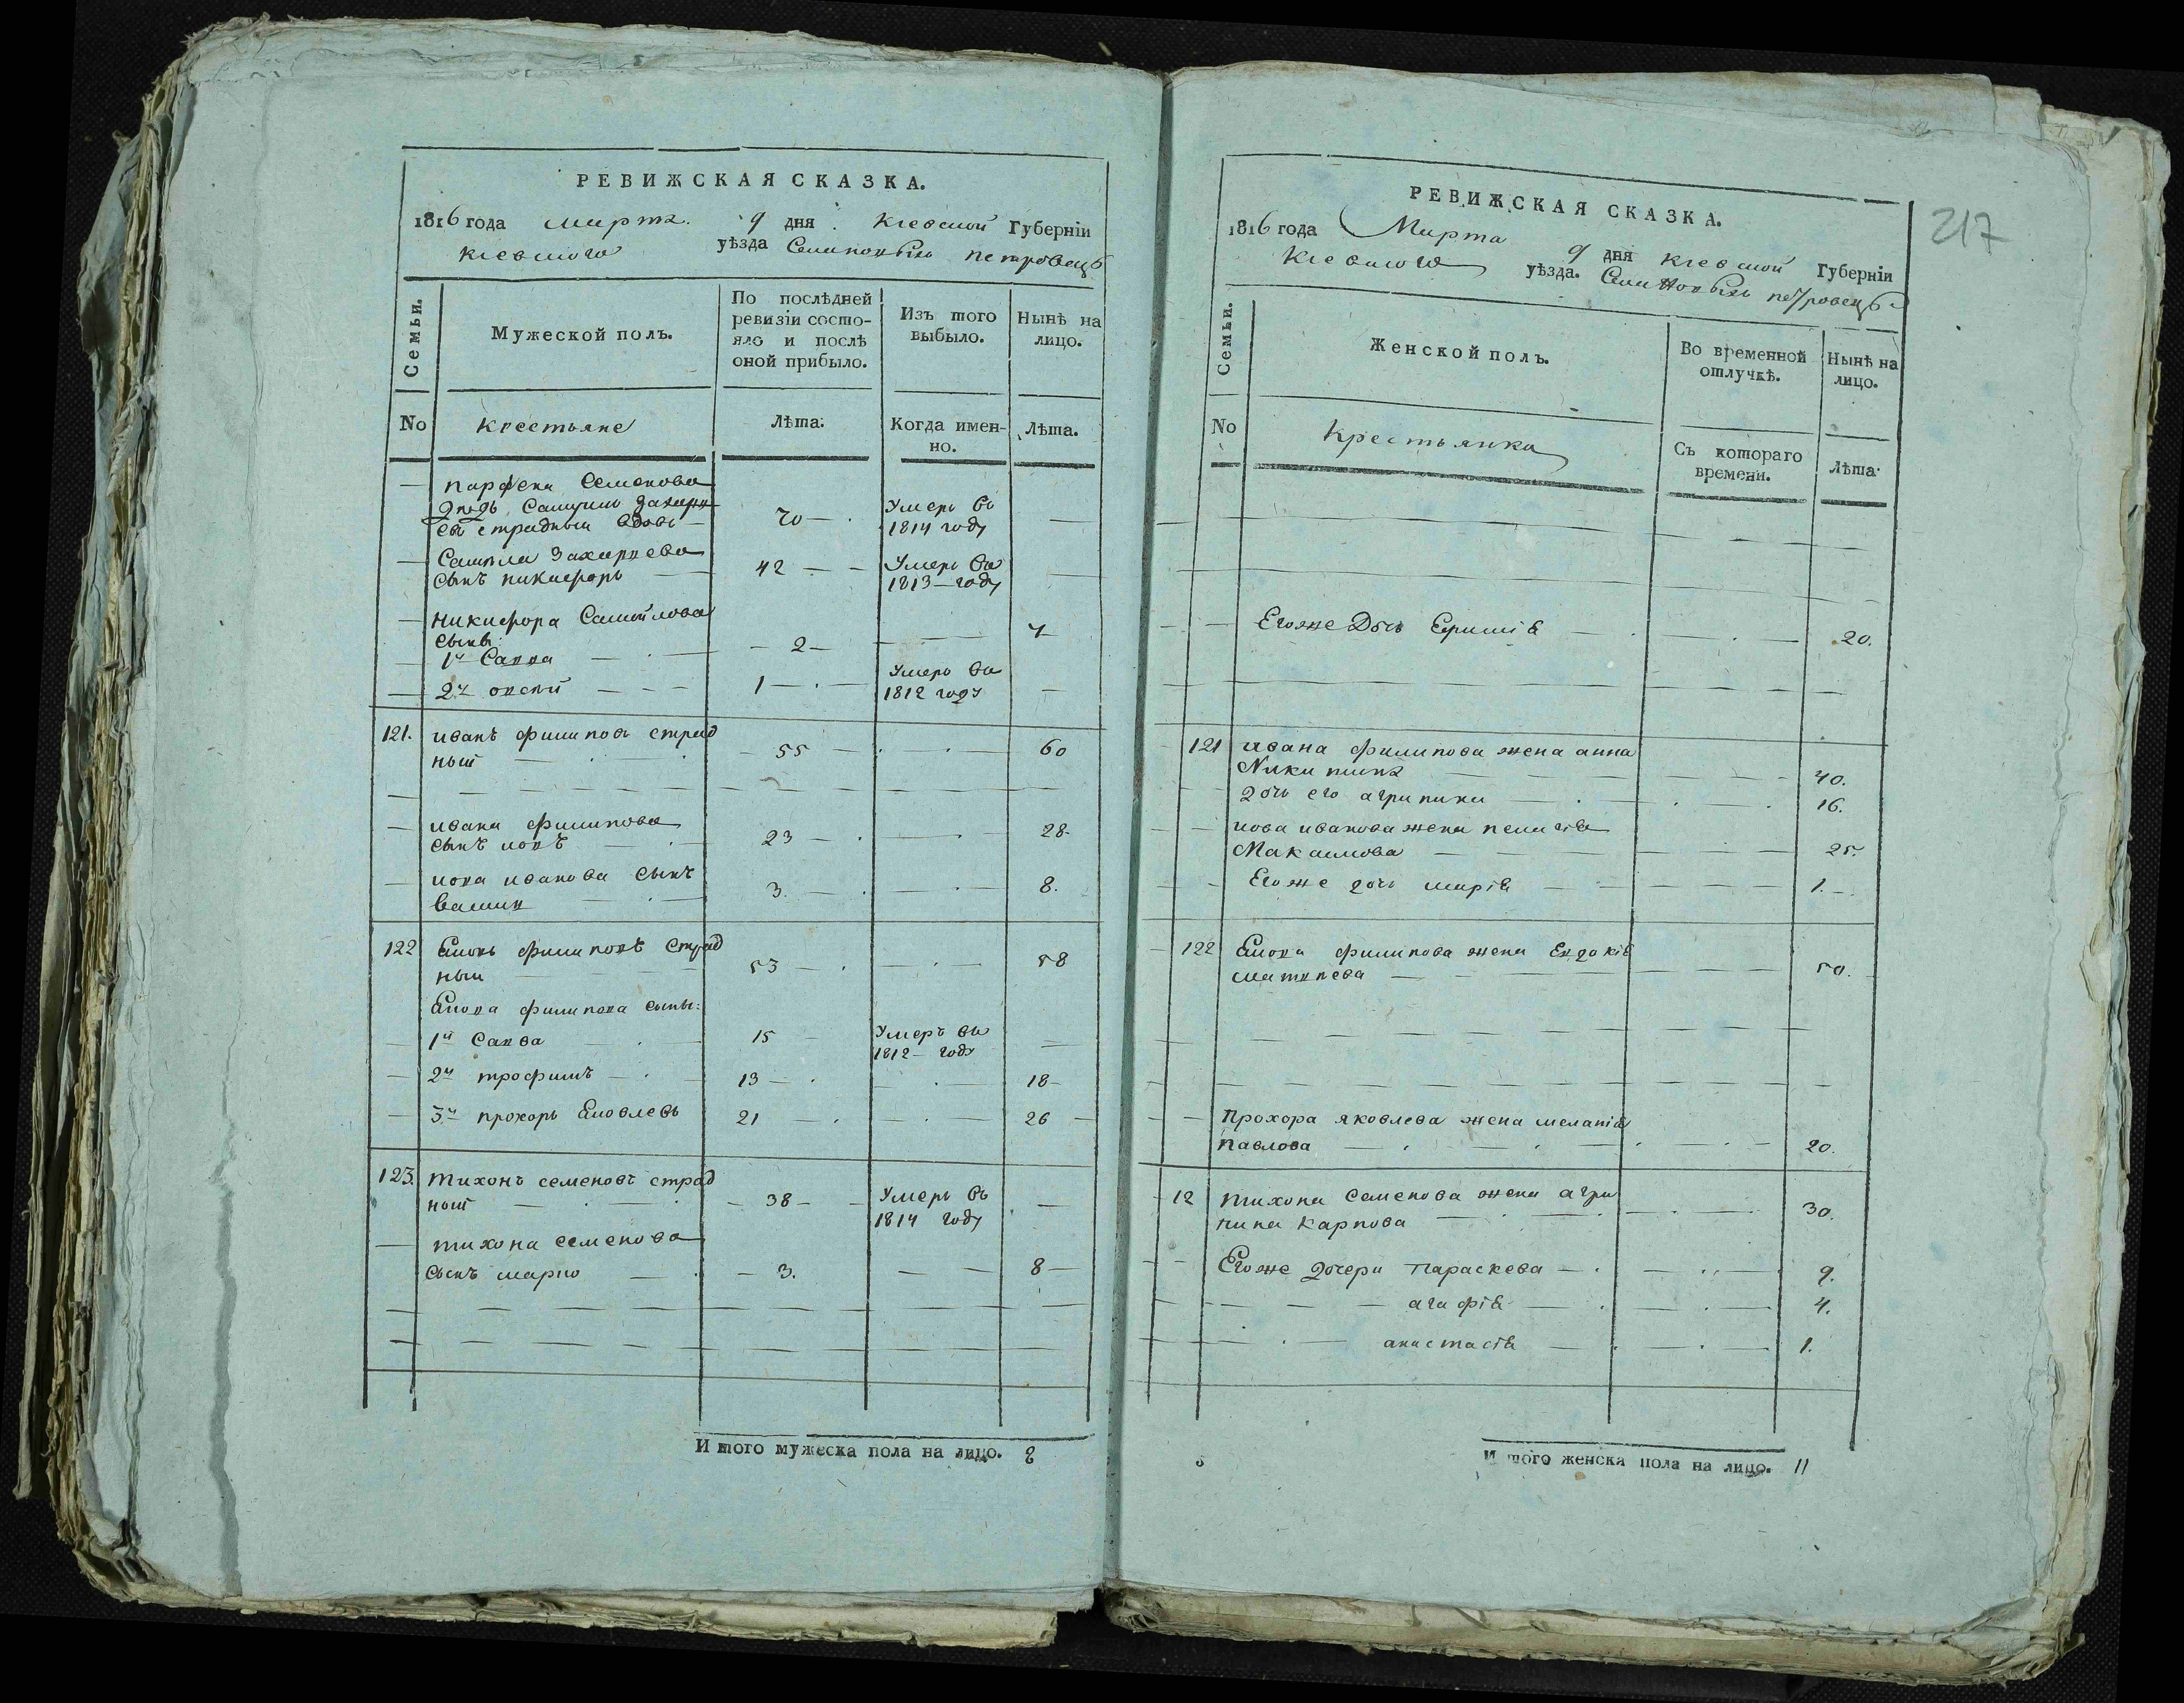 РЕВИЖСКАЯ СКАЗКА.
1816 года Марта 9 дня Киевской Губернїи
Киевского уѣзда Села новыхъ петровецъ
Семьи.
Мужеской полъ.
По послѣдней
ревизіи состо-
яло и послѣ
оной прибыло.
Изъ того
выбыло.
Нынѣ на
лицо.
No
Крестьяне
Лѣта.
Когда имен-
но.
Лѣта.
парфена Семенова
дядь Самуило Захарı
евъ страдный вдовъ
70
Умеръ въ
1814 году
Самѡйла Захарıева
сынъ никифоръ
42
Умеръ въ
1813 году
Никифора Самойлова
сыны
1й Савва
2
7
2й
1
Умеръ въ
1812 году
121.
иванъ филиповъ страд
ный
55
60
ивана филипова
сынъ иовъ
23
28
иова иванова сынъ
васили
3.
8.
122
Яковъ филиповъ страд
ный
53
58
Якова филипова сыны:
1й Савва
15
Умеръ въ
1812 году
2й трофимъ
13
18
3й прохоръ Яковлевъ
21
26
123.
тихонъ семеновъ страд
ный
38
Умеръ въ
1814 году
тихона семенова
сынъ марко
3.
8
И того мужеска пола на лицо. 8
РЕВИЖСКАЯ СКАЗКА.
217
1816 года Марта 9 дня Киевской Губернїи
Киевского уѣзда. Села Новыхъ петровецъ
Семьи.
Женской полъ.
Во временной
отлучкѣ.
Нынѣ на
лицо.
No
Крестьянка
Съ котораго
времени.
Лѣта.
Егоже Дочь
20.
121
ивана филипова жена анна
Никитина
40.
дочь его агрипина
16.
иова иванова жена пелагія
Максимова
25.
Егоже дочь марія
1.
122
Якова филипова жена Евдокія
матвіева
50.
Прохора яковлева жена меланія
павлова
20.
12
тихона семенова жена агри
пина Карпова
30.
Егоже дочери параскева
9.
агафія
4.
анастасія
1.
И того женска пола на лицо. 11